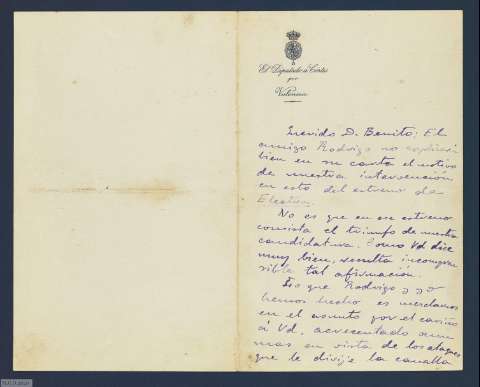 El Diputado a Cortes
por
Valencia
Querido D. Benito: El
amigo Rodrigo no explicó
bien en su carta el motivo
de nuestra intervención
en esto del estreno de
Electra.
No es que en ese estreno
consista el triunfo de nuestra
candidatura. Como Vd dice
muy bien, resulta incompren
sible tal afirmación.
Lo que Rodrigo y yo
hemos hecho es mezclarnos
en el asunto por el cariño
á Vd. acrecentado aun
mas en vista de los ataques
que le dirije la canalla